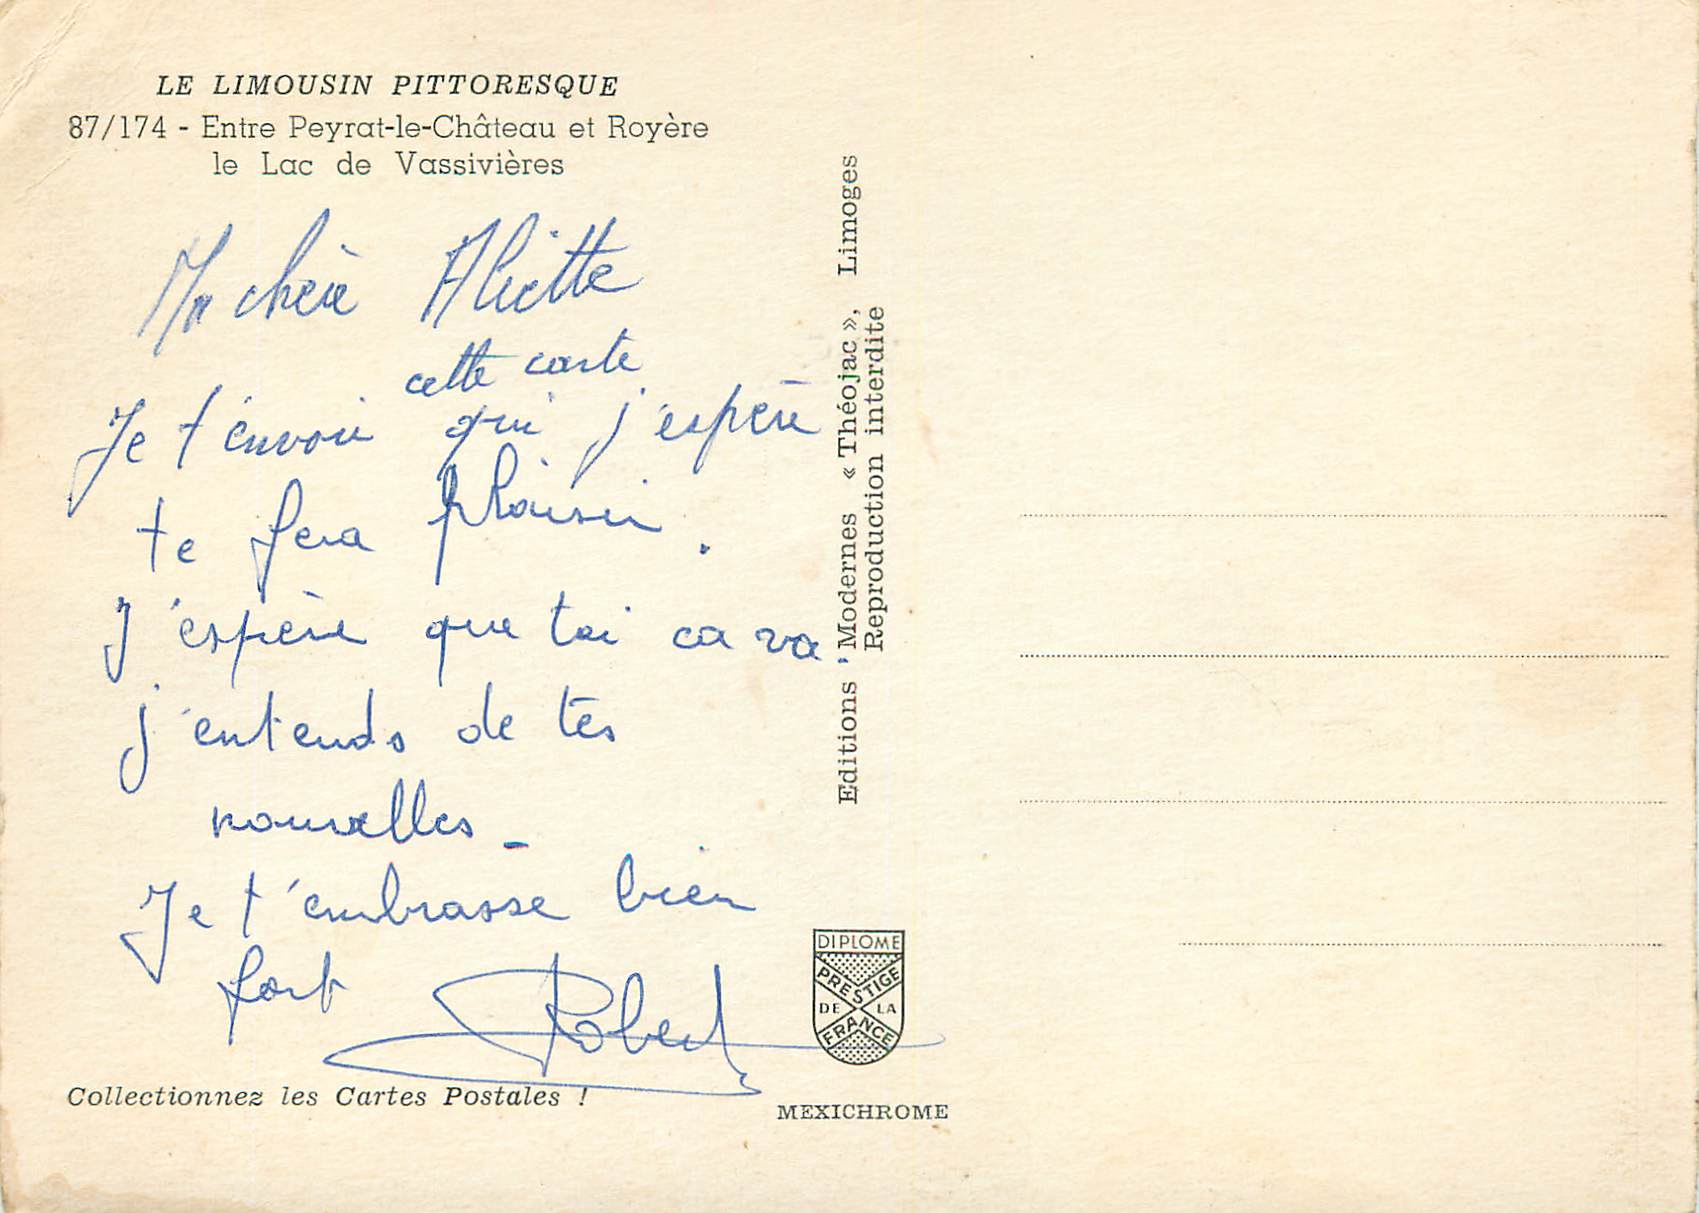 LE LIMOUSIN PITTORESQUE
87/174 - Entre Peyrat-le-Château et Royère
le Lac de Vassivières
Ma chère Aliette
cette carte
Je t'envoie qui j'espère
te fera plaisir.
J'espère que toi ca va.
j'entends de tes
nouvelles_
Je t'embrasse bien
fort Robert
Collectionnez les Cartes Postales !
Editions Modernes « Théojac », Limoges
Reproduction interdite
DIPLOME
PRESTIGE
DE LA
FRANCE
MEXICHROME